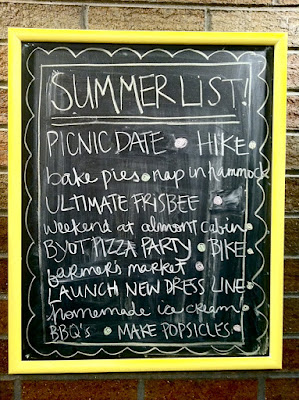 SUMMER LIST!
PICNIC DATE • HIKE •
bake pies • nap in hammock
ULTIMATE FRISBEE •
weekend at almont cabin •
BYOT PIZZA PARTY • BIKE •
farmer's market •
LAUNCH NEW DRESS LINE •
homemade ice cream! •
BBQ's • MAKE POPSICLES •